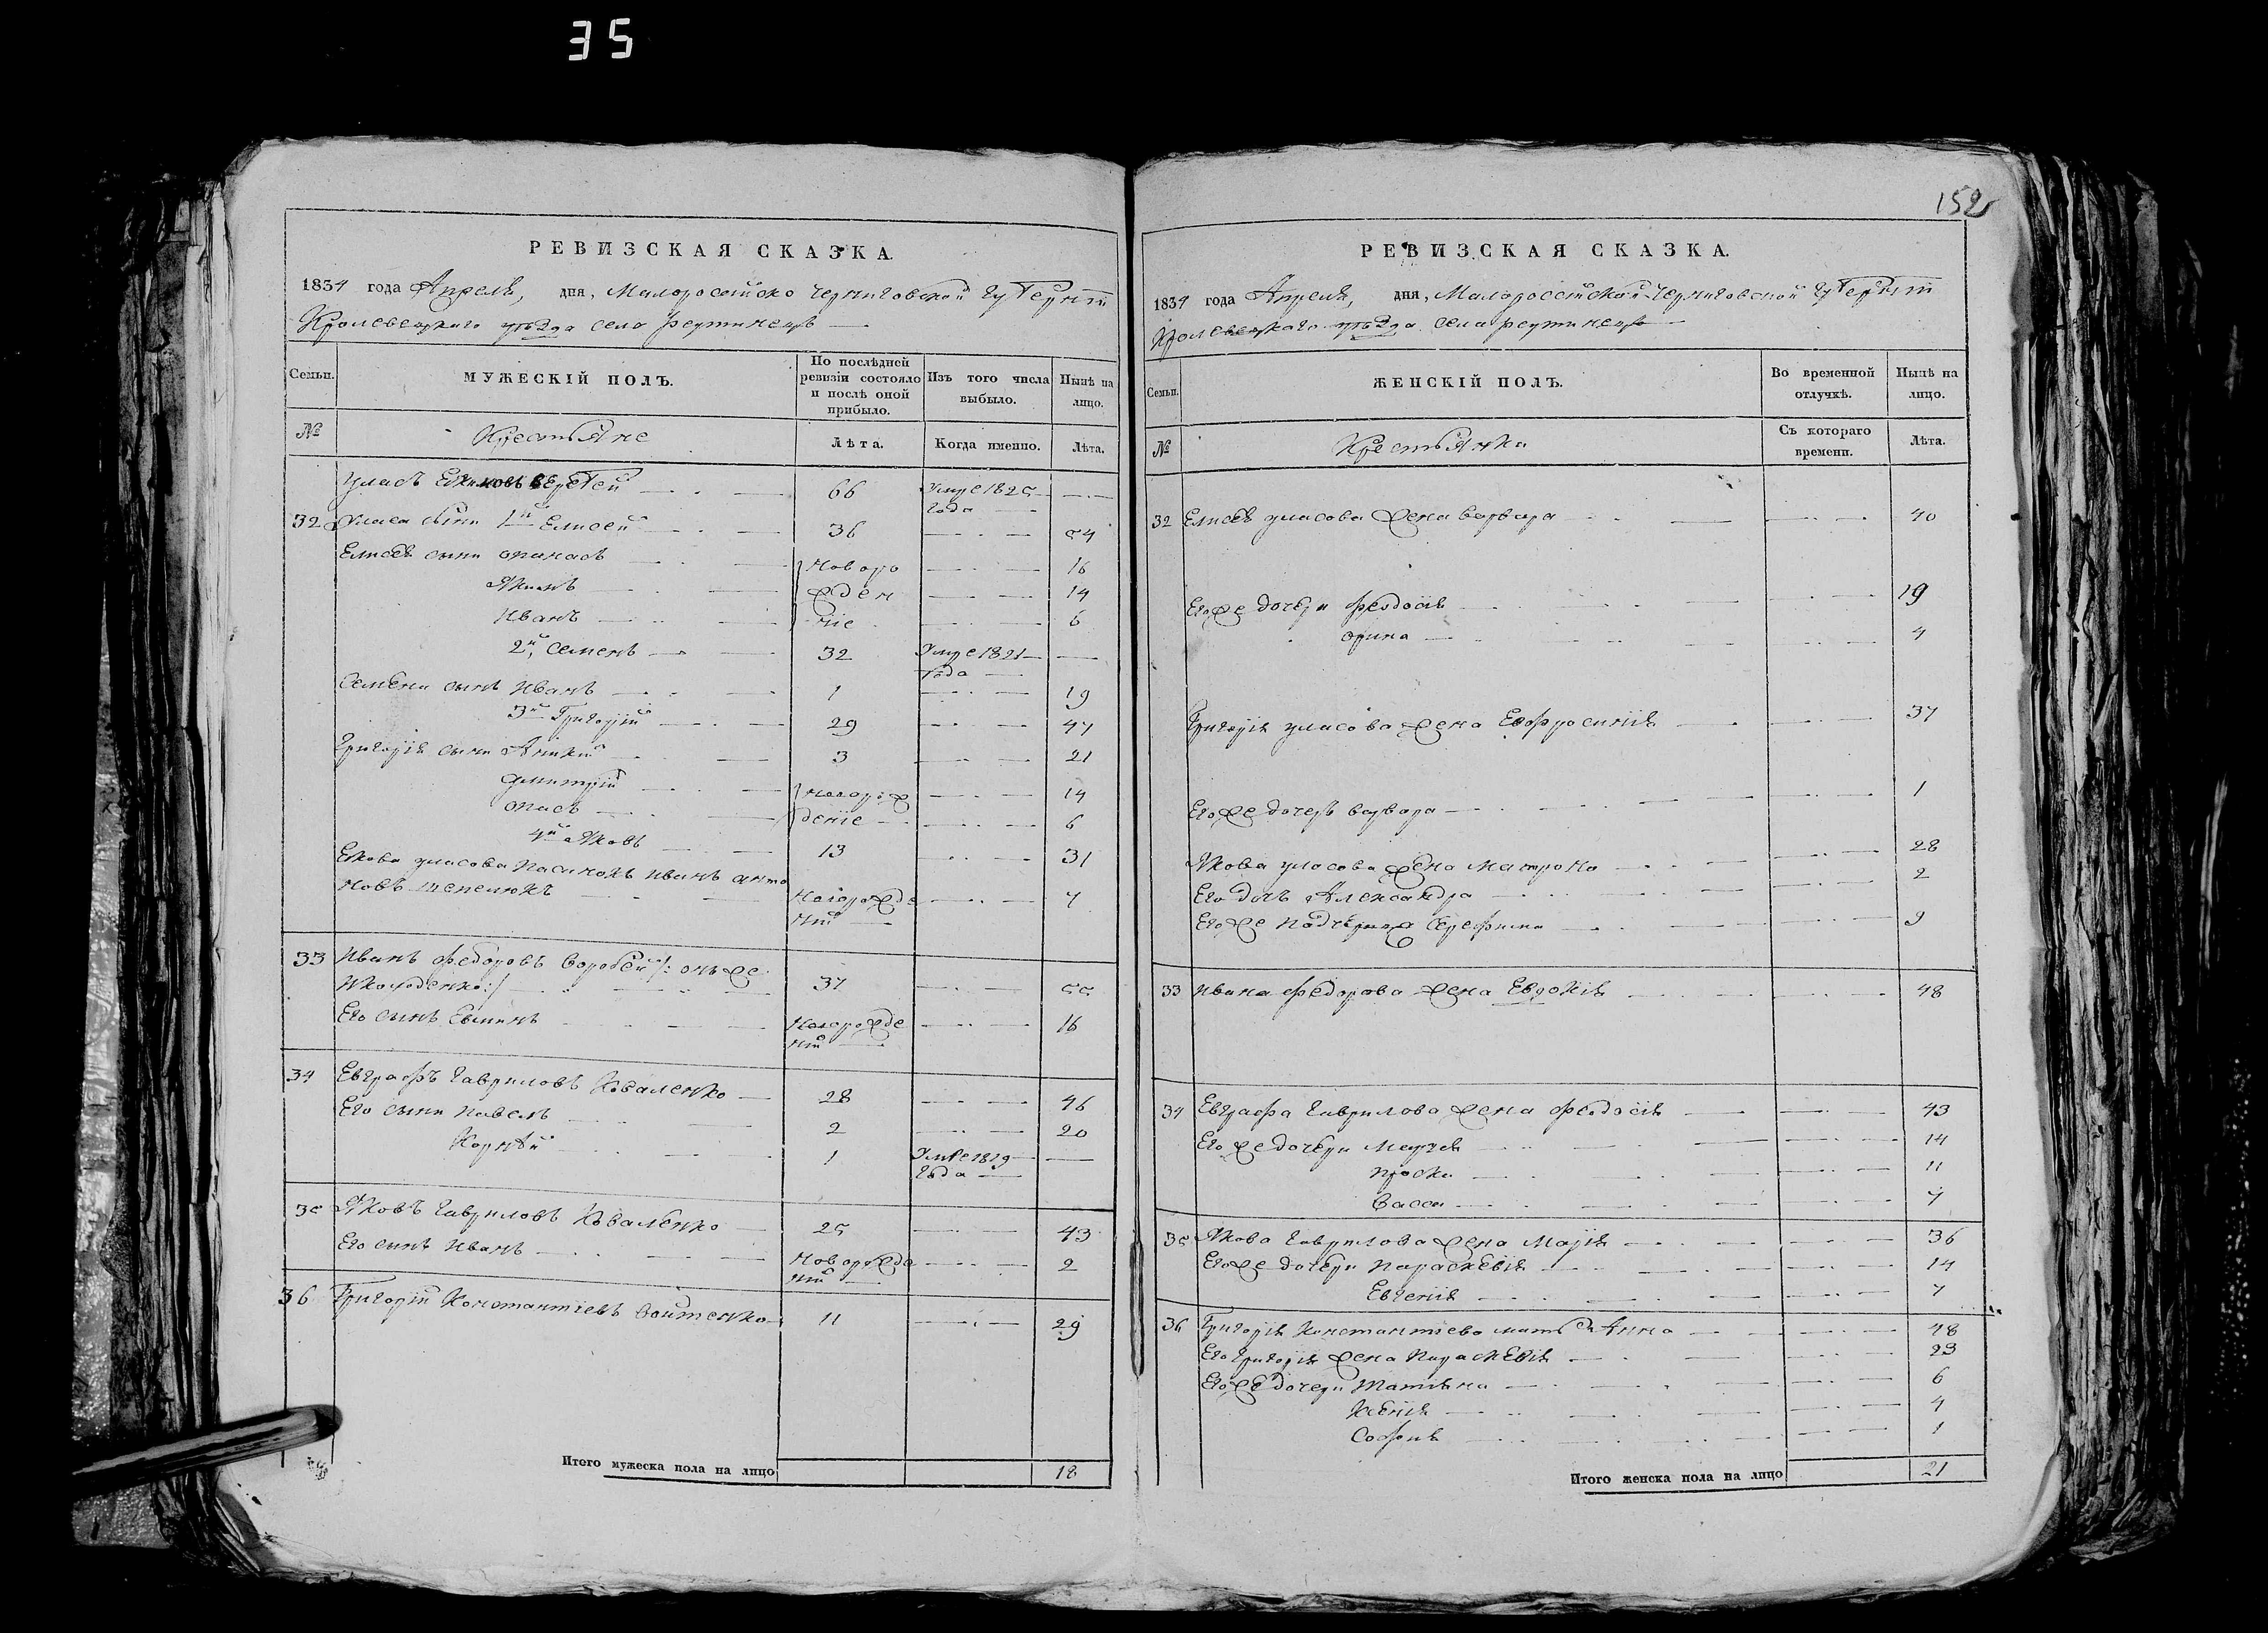 35
152
РЕВИЗСКАЯ СКАЗКА.
1834 года Апреля, дня, Малоросейско Черниговской губерніи
Кролевецкаго уѣзда села реутинецъ
Семьи. МУЖЕСКІЙ ПОЛЪ. По послѣдней ревизіи состояло и послѣ оной прибыло. Изъ того числа выбыло. Нынѣ на лицо.
№ Крестьяне Лѣта. Когда именно. Лѣта.
Уласъ 66 Умре 1825 года
32 Уласа сыни 1й Елисей 36 54
Елисея сыни Опанасъ Новоро 16
Якимъ жден 14
Иванъ ніе 6
2й, Семенъ 32 Умре 1821 года
Семена сынъ Иванъ 1 19
3й Григорій 29 47
Григорія сыни Аникий 3 21
Дмитрій новорож 14
Опасъ деніе 6
4й Яковъ 13 31
Якова уласова пасинокъ Иванъ анто
новъ шепелюкъ Новорожде ній 7
33 Иванъ Федоровъ Воробей /: онъ же
:/ 37 55
Его сынъ Новорожде ній 16
34 Евграфъ Гавриловъ Коваленко 28 46
Его сыни Павелъ 2 20
Корнѣй 1 Умре 1819 года
35 Яковъ Гавриловъ Коваленко 25 43
Его сынъ Иванъ Новорожде ній 2
36 Григорій Константіевъ Войтенко 11 29
Итого мужеска пола на лицо 18
РЕВИЗСКАЯ СКАЗКА.
1834 года Апреля, дня, Малоросейской Черниговской губерніи
Кролевецкаго уѣзда села реутинецъ
Семьи. ЖЕНСКІЙ ПОЛЪ. Во временной отлучкѣ. Нынѣ на лицо.
№ Крестьянки Съ котораго времени. Лѣта.
32 Елисея уласова жена Варвара 40
Его же дочери Феодосія 19
Орина 4
Григорія уласова жена Евфросинія 37
Его же дочерь Варвара 1
Якова уласова жена Матрона 28
Его дочь Александра 2
Его же падчерица Серафима 9
33 Ивана Федорова жена Евдокія 48
34 Евграфа Гаврилова жена Феодосія 43
Его же дочери 14
Проска 11
Васса 7
35 Якова Гаврилова жена Марія 36
Его же дочери Параскевія 14
Евгенія 7
36 Григорія Константіева мать Анна 48
Его Григорія жена Параскевія 23
Его же дочери Татіяна 6
Ксенія 4
Софія 1
Итого женска пола на лицо 21